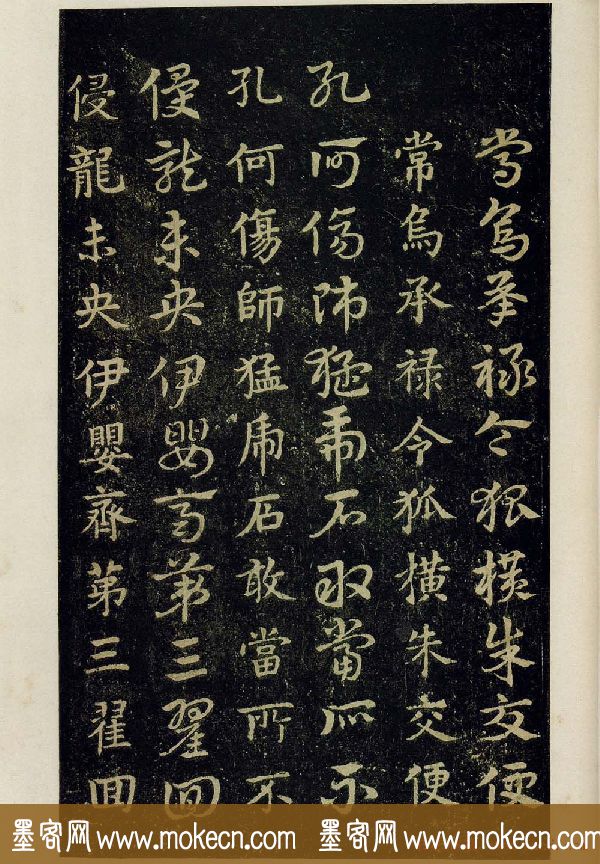 常烏承禄令狐橫朱交便
常烏承禄令狐橫朱交便
孔何傷師猛虎石敢當所不
孔何傷師猛虎石敢當所不
侵龍未央伊嬰齊第三翟回
侵龍未央伊嬰齊第三翟回
墨客网 www.mokecn.com 墨客网 www.mokecn.com